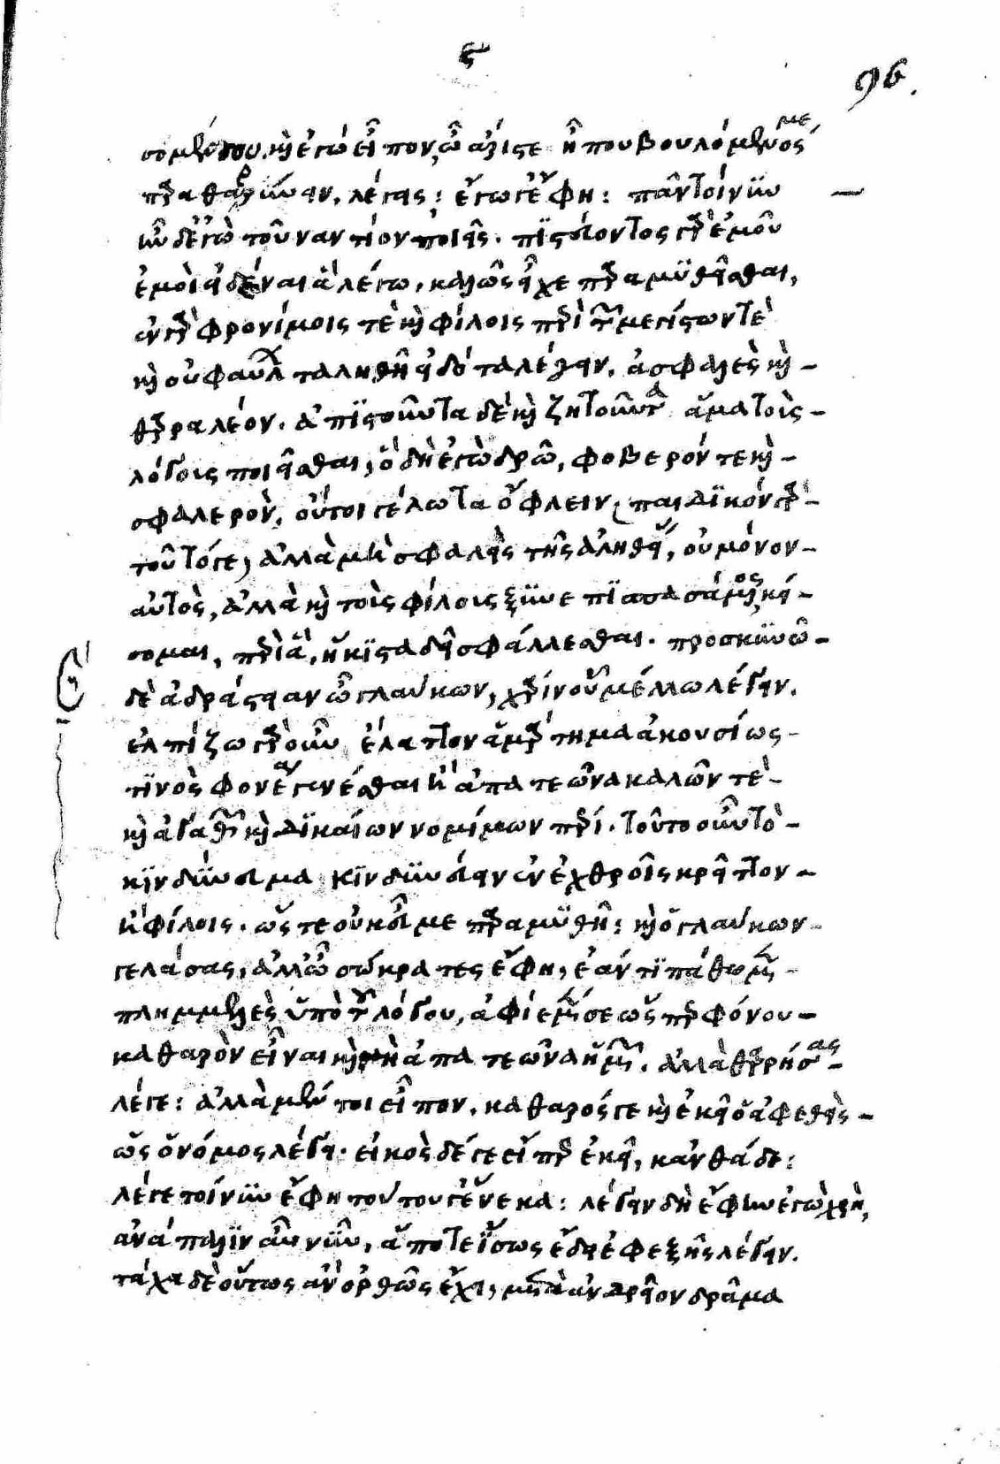 ϛ
96.
σομαί σου. καὶ ἐγὼ εἶπον, ὦ ἄριστε ἦ που βουλόμενός με
παραθαρρύνειν, λέγεις; ἔγωγ' ἔφη: πᾶν τοίνυν
ἦν δ' ἐγὼ τοὐναντίον ποιεῖς. πιστεύοντος γὰρ ἐμοῦ
ἐμοὶ εἰδέναι ἃ λέγω, καλῶς εἶχε παραμυθεῖσθαι,
ἐν γὰρ φρονίμοις τὲ καὶ φίλοις περὶ τῶν μεγίστων τὲ
καὶ οὐ φαύλων τἀληθῆ εἰδότα λέγειν, ἀσφαλὲς καὶ
θαρραλέον. ἀπιστοῦντα δὲ καὶ ζητοῦντα ἅμα τοὺς
λόγους ποιεῖσθαι, ὃ δὴ ἐγὼ δρῶ, φοβερόν τε καὶ
σφαλερὸν, οὔτοι γέλωτα ὄφλειν, παιδικόν γὰρ
τοῦτόγε, ἀλλὰ μὴ σφαλεὶς τῆς ἀληθείας, οὐ μόνον
αὐτὸς, ἀλλὰ καὶ τοὺς φίλους ξυνεπισπασάμενος κεί-
σομαι, περὶ ἃ, ἥκιστα δεῖ σφάλλεσθαι. προσκυνῶ
δὲ ἀδράστειαν ὦ γλαύκων, χάριν οὗ μέλλω λέγειν.
ἐλπίζω γὰρ οὖν ἔλαττον ἁμάρτημα ἀκουσίως
τινὸς φονέα γενέσθαι ἢ ἀπατεῶνα καλῶν τὲ
καὶ ἀγαθῶν καὶ δικαίων νομίμων περί. τοῦτο οὖν τὸ
κινδύνευμα κινδυνεύειν ἐν ἐχθροῖς κρεῖττον
ἢ φίλοις. ὥστε οὐκοῦν με παραμυθῇ: καὶ ὁ γλαύκων
γελάσας, ἀλλ' ὦ σώκρατες ἔφη, ἐάν τι πάθωμεν
πλημμελὲς ὑπὸ τοῦ λόγου, ἀφίεμέν σε ὥσπερ φόνου
καθαρὸν εἶναι καὶ μὴ ἀπατεῶνα ἡμῶν. ἀλλὰ θαρρήσας
λέγε: ἀλλὰ μέν τοι εἶπον, καθαρός γε καὶ ἐκεῖ ὁ ἀφεθεὶς
ὡς ὁ νόμος λέγει. εἰκὸς δέ γε εἴπερ ἐκεῖ, κἀνθάδε:
λέγε τοίνυν ἔφη τούτου γ' ἕνεκα: λέγειν δὴ ἔφην ἐγὼ χρὴ,
ἀνάπαλιν αὖ νῦν, ἅ ποτε ἴσως ἔδει ἐφεξῆς λέγειν.
τάχα δὲ οὕτως ἂν ὀρθῶς ἔχει, μετὰ ἀνδρεῖον δρᾶμα